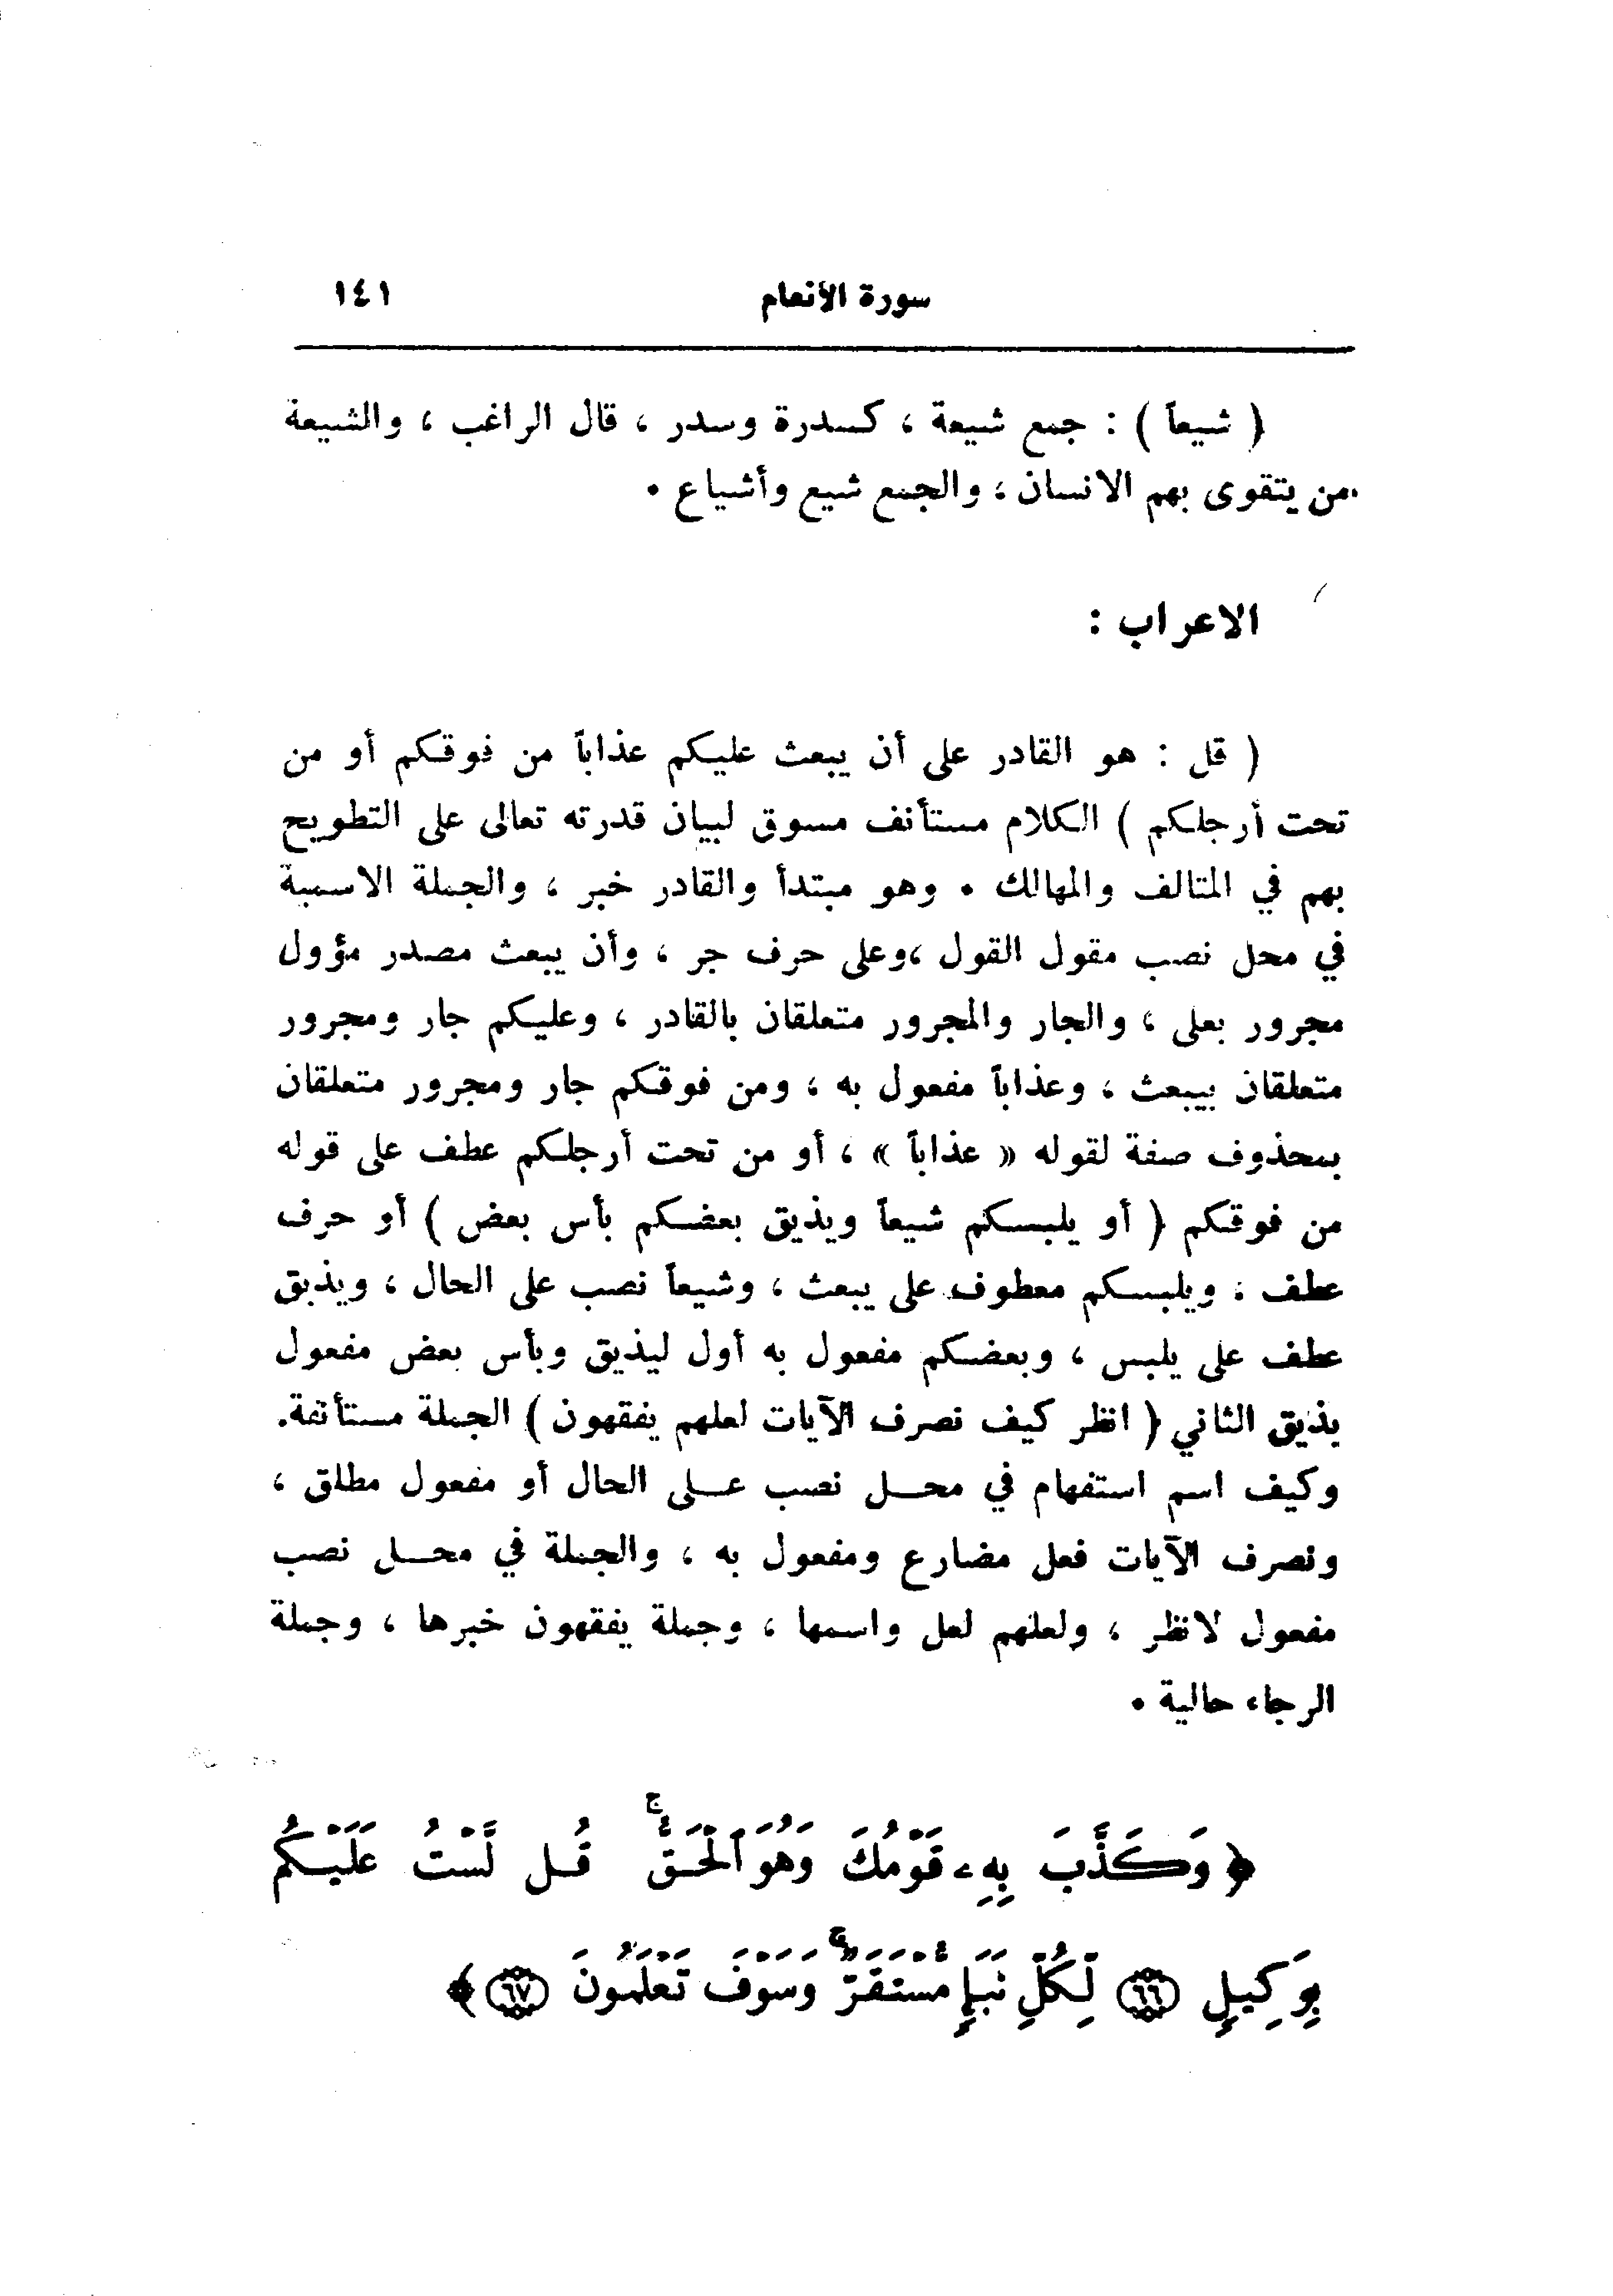 سورة الأنعام ١٤١
( شيعاً ) : جمع شيعة ، كسدرة وسدر ، قال الراغب ، والشيعة
من يتقوى بهم الانسان ، والجمع شيع وأشياع .
الاعراب :
( قل : هو القادر على أن يبعث عليكم عذاباً من فوقكم أو من
تحت أرجلكم ) الكلام مستأنف مسوق لبيان قدرته تعالى على التطويح
بهم في المتالف والمهالك . وهو مبتدأ والقادر خبر ، والجملة الاسمية
في محل نصب مقول القول ،وعلى حرف جر ، وأن يبعث مصدر مؤول
مجرور بعلى ، والجار والمجرور متعلقان بالقادر ، وعليكم جار ومجرور
متعلقان بيبعث ، وعذاباً مفعول به ، ومن فوقكم جار ومجرور متعلقان
بمحذوف صفة لقوله « عذاباً » ، أو من تحت أرجلكم عطف على قوله
من فوقكم ( أو يلبسكم شيعاً ويذيق بعضكم بأس بعض ) أو حرف
عطف ، ويلبسكم معطوف على يبعث ، وشيعاً نصب على الحال ، ويذيق
عطف على يلبس ، وبعضكم مفعول به أول ليذيق وبأس بعض مفعول
يذيق الثاني ( انظر كيف نصرف الآيات لعلهم يفقهون ) الجملة مستأنفة.
وكيف اسم استفهام في محل نصب على الحال أو مفعول مطلق ،
ونصرف الآيات فعل مضارع ومفعول به ، والجملة في محل نصب
مفعول لانظر ، ولعلهم لعل واسمها ، وجملة يفقهون خبرها ، وجملة
الرجاء حالية .
﴿ وَكَذَّبَ بِهِۦ قَوْمُكَ وَهُوَ ٱلْحَقُّ ۚ قُل لَّسْتُ عَلَيْكُم
بِوَكِيلٍ ٦٦ لِّكُلِّ نَبَإٍ مُّسْتَقَرٌّ ۚ وَسَوْفَ تَعْلَمُونَ ٦٧ ﴾